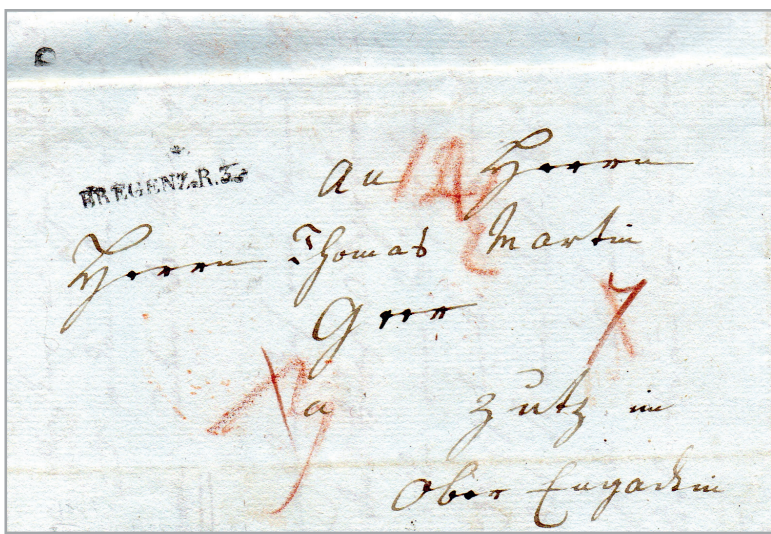 BREGENZ.R.3.
An Herrn
Herrn Thomas Martin
a Zutz im
Ober Engadin